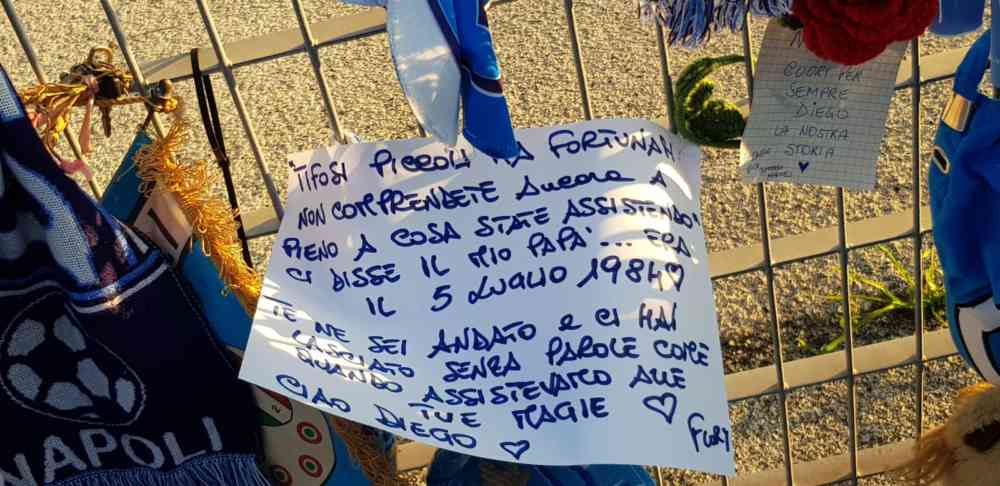 "TIFOSI PICCOLI MA FORTUNATI
NON COMPRENDETE ANCORA A
PIENO A COSA STATE ASSISTENDO"
CI DISSE IL MIO PAPA'... ERA
IL 5 LUGLIO 1984♡
TE NE SEI ANDATO E CI HAI
LASCIATO SENZA PAROLE COME
QUANDO ASSISTEVAMO ALLE
TUE MAGIE ♡
CIAO DIEGO ♡
FURY
CUORI PER
SEMPRE
DIEGO
LA NOSTRA
STORIA
NAPOLI